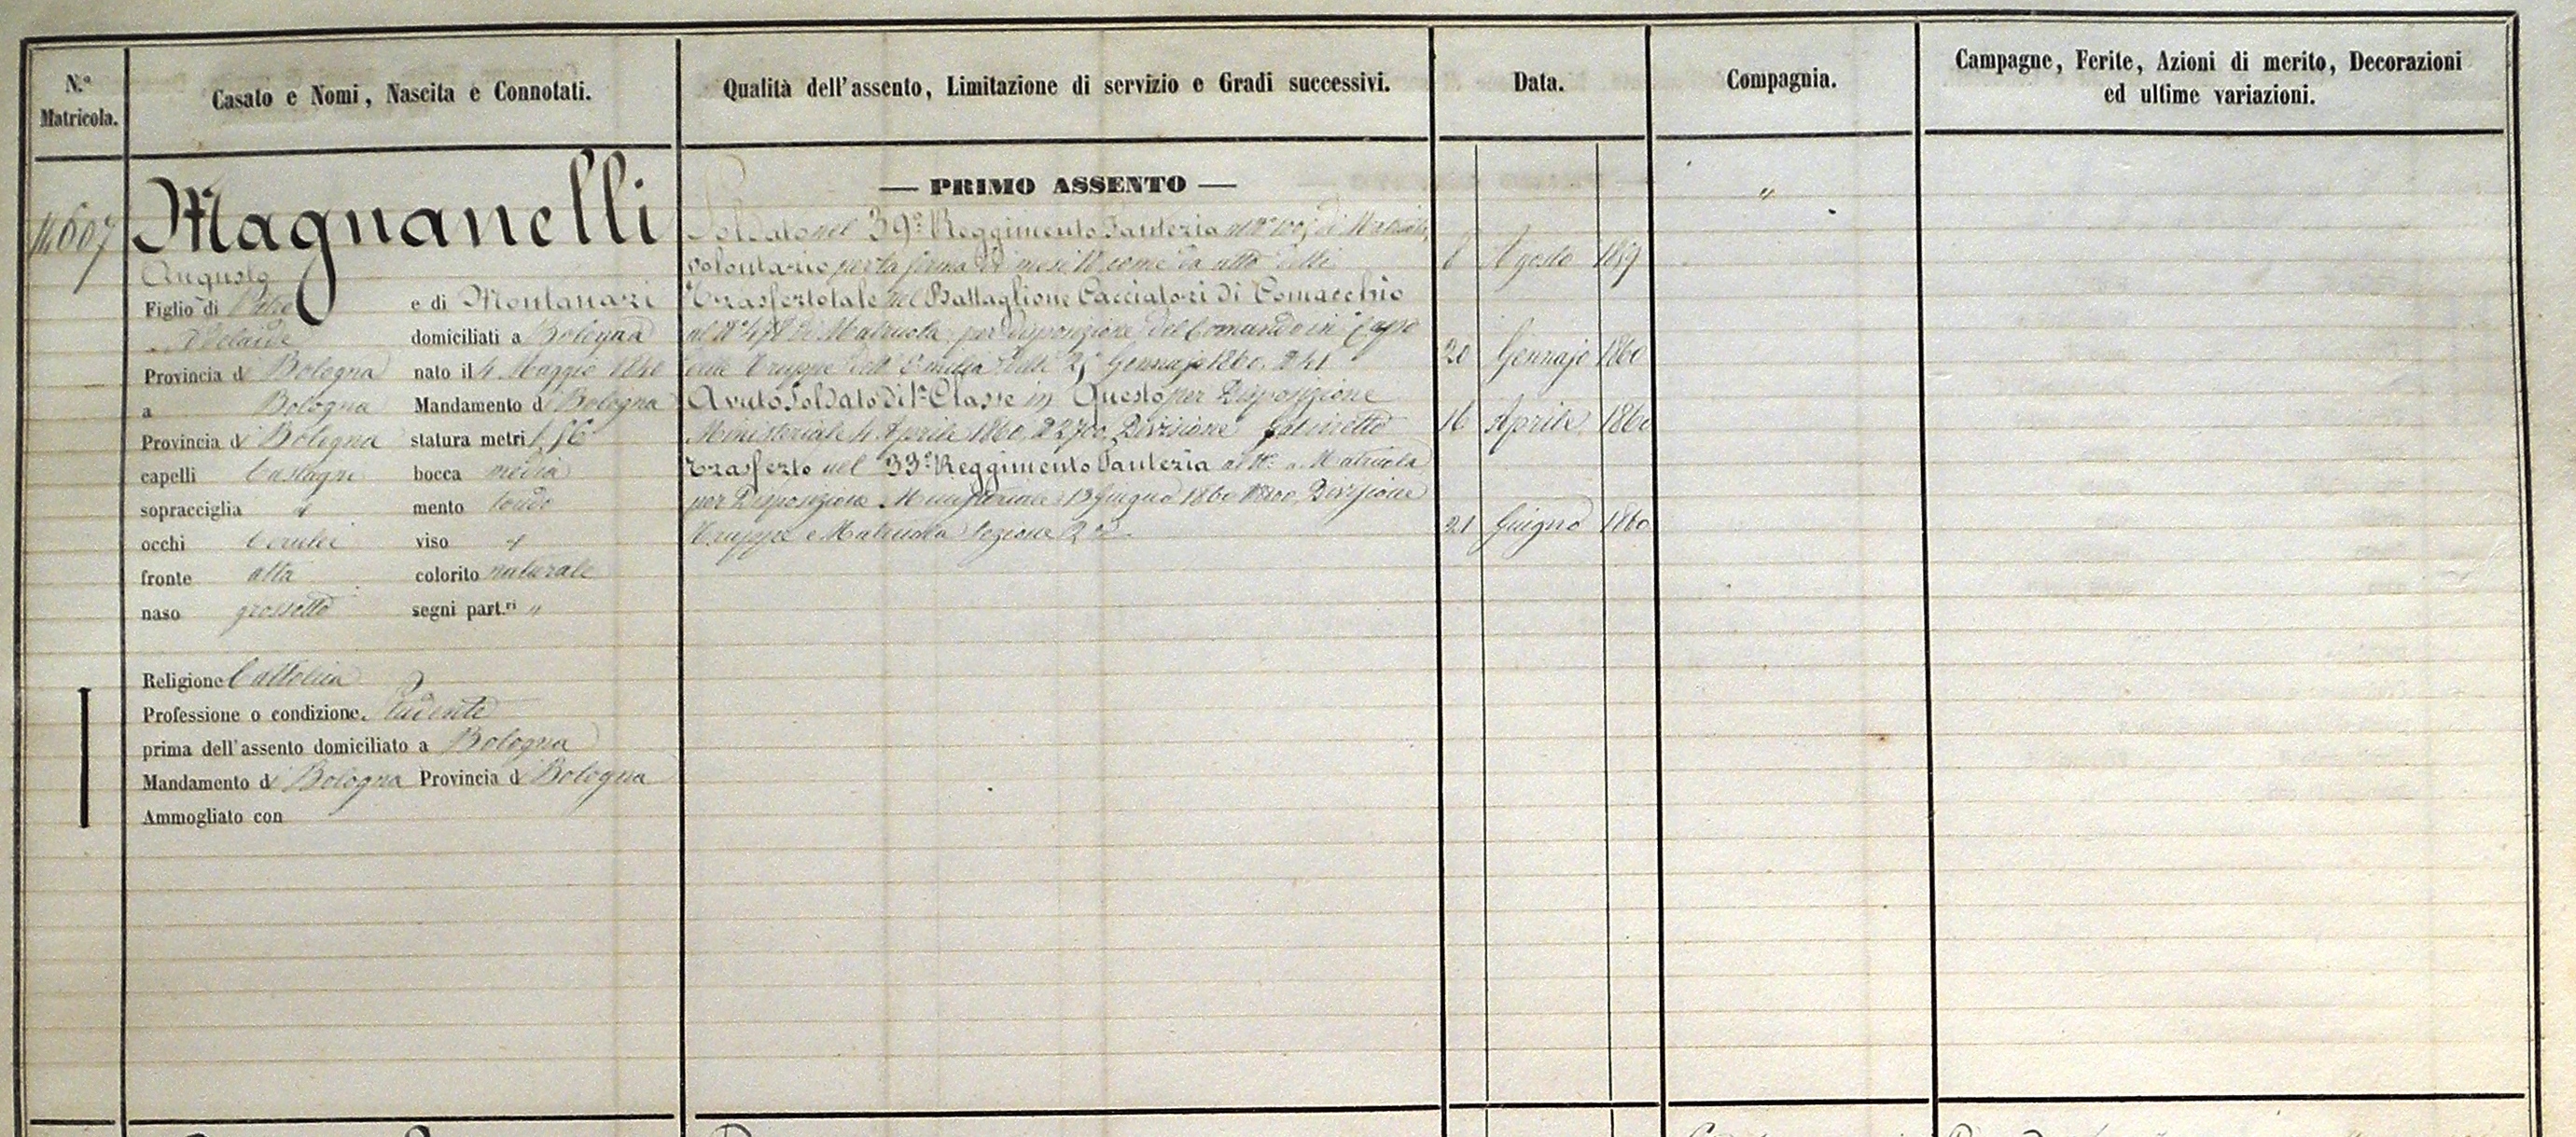 N.º Matricola.
Casato e Nomi, Nascita e Connotati.
Qualità dell'assento, Limitazione di servizio e Gradi successivi.
Data.
Compagnia.
Campagne, Ferite, Azioni di merito, Decorazioni
ed ultime variazioni.
14607
Magnanelli
Augusto
Figlio di e di Montanari
Adelaide domiciliati a Bologna
Provincia di Bologna nato il 4 Maggio 1840
a Bologna Mandamento di Bologna
Provincia di Bologna statura metri 1.56
capelli Castagni bocca media
sopracciglia " mento tondo
occhi Cerulei viso "
fronte alta colorito naturale
naso grossetto segni part.ri "
Religione Cattolica
Professione o condizione Studente
prima dell'assento domiciliato a Bologna
Mandamento di Bologna Provincia di Bologna
Ammogliato con
— PRIMO ASSENTO —
Soldato nel 39º Reggimento Fanteria al Nº di Matricola,
volontario per la ferma di mesi 18 come da atto delli 8 Agosto 1859
Trasferto tale nel Battaglione Cacciatori di Comacchio
al Nº 478 di Matricola per disposizione del Comando in Capo
delle Truppe dell'Emilia delli Gennajo 1860. 20 Gennajo 1860
Avuto Soldato di 1ª Classe in Questo per Disposizione
Ministeriale 4 Aprile 1860, Nº 2700, Divisione Gabinetto 16 Aprile 1860
Trasferto nel 33º Reggimento Fanteria al Nº Matricola
per Disposizione Ministeriale 13 Giugno 1860 Divisione
Truppe e Matricola Sezione 2ª 21 Giugno 1860
"